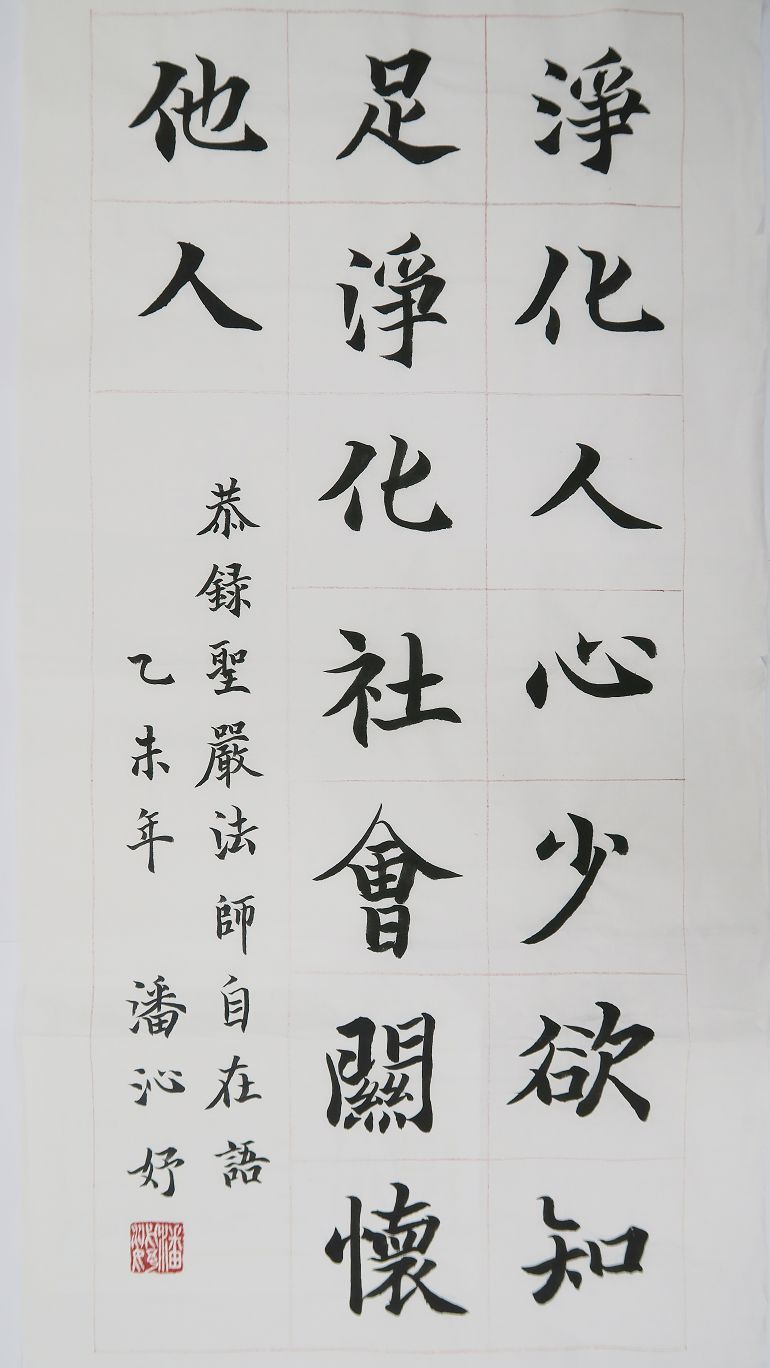 淨化人心少欲知
足淨化社會關懷
他人
恭録聖嚴法師自在語
乙未年 潘沁妤